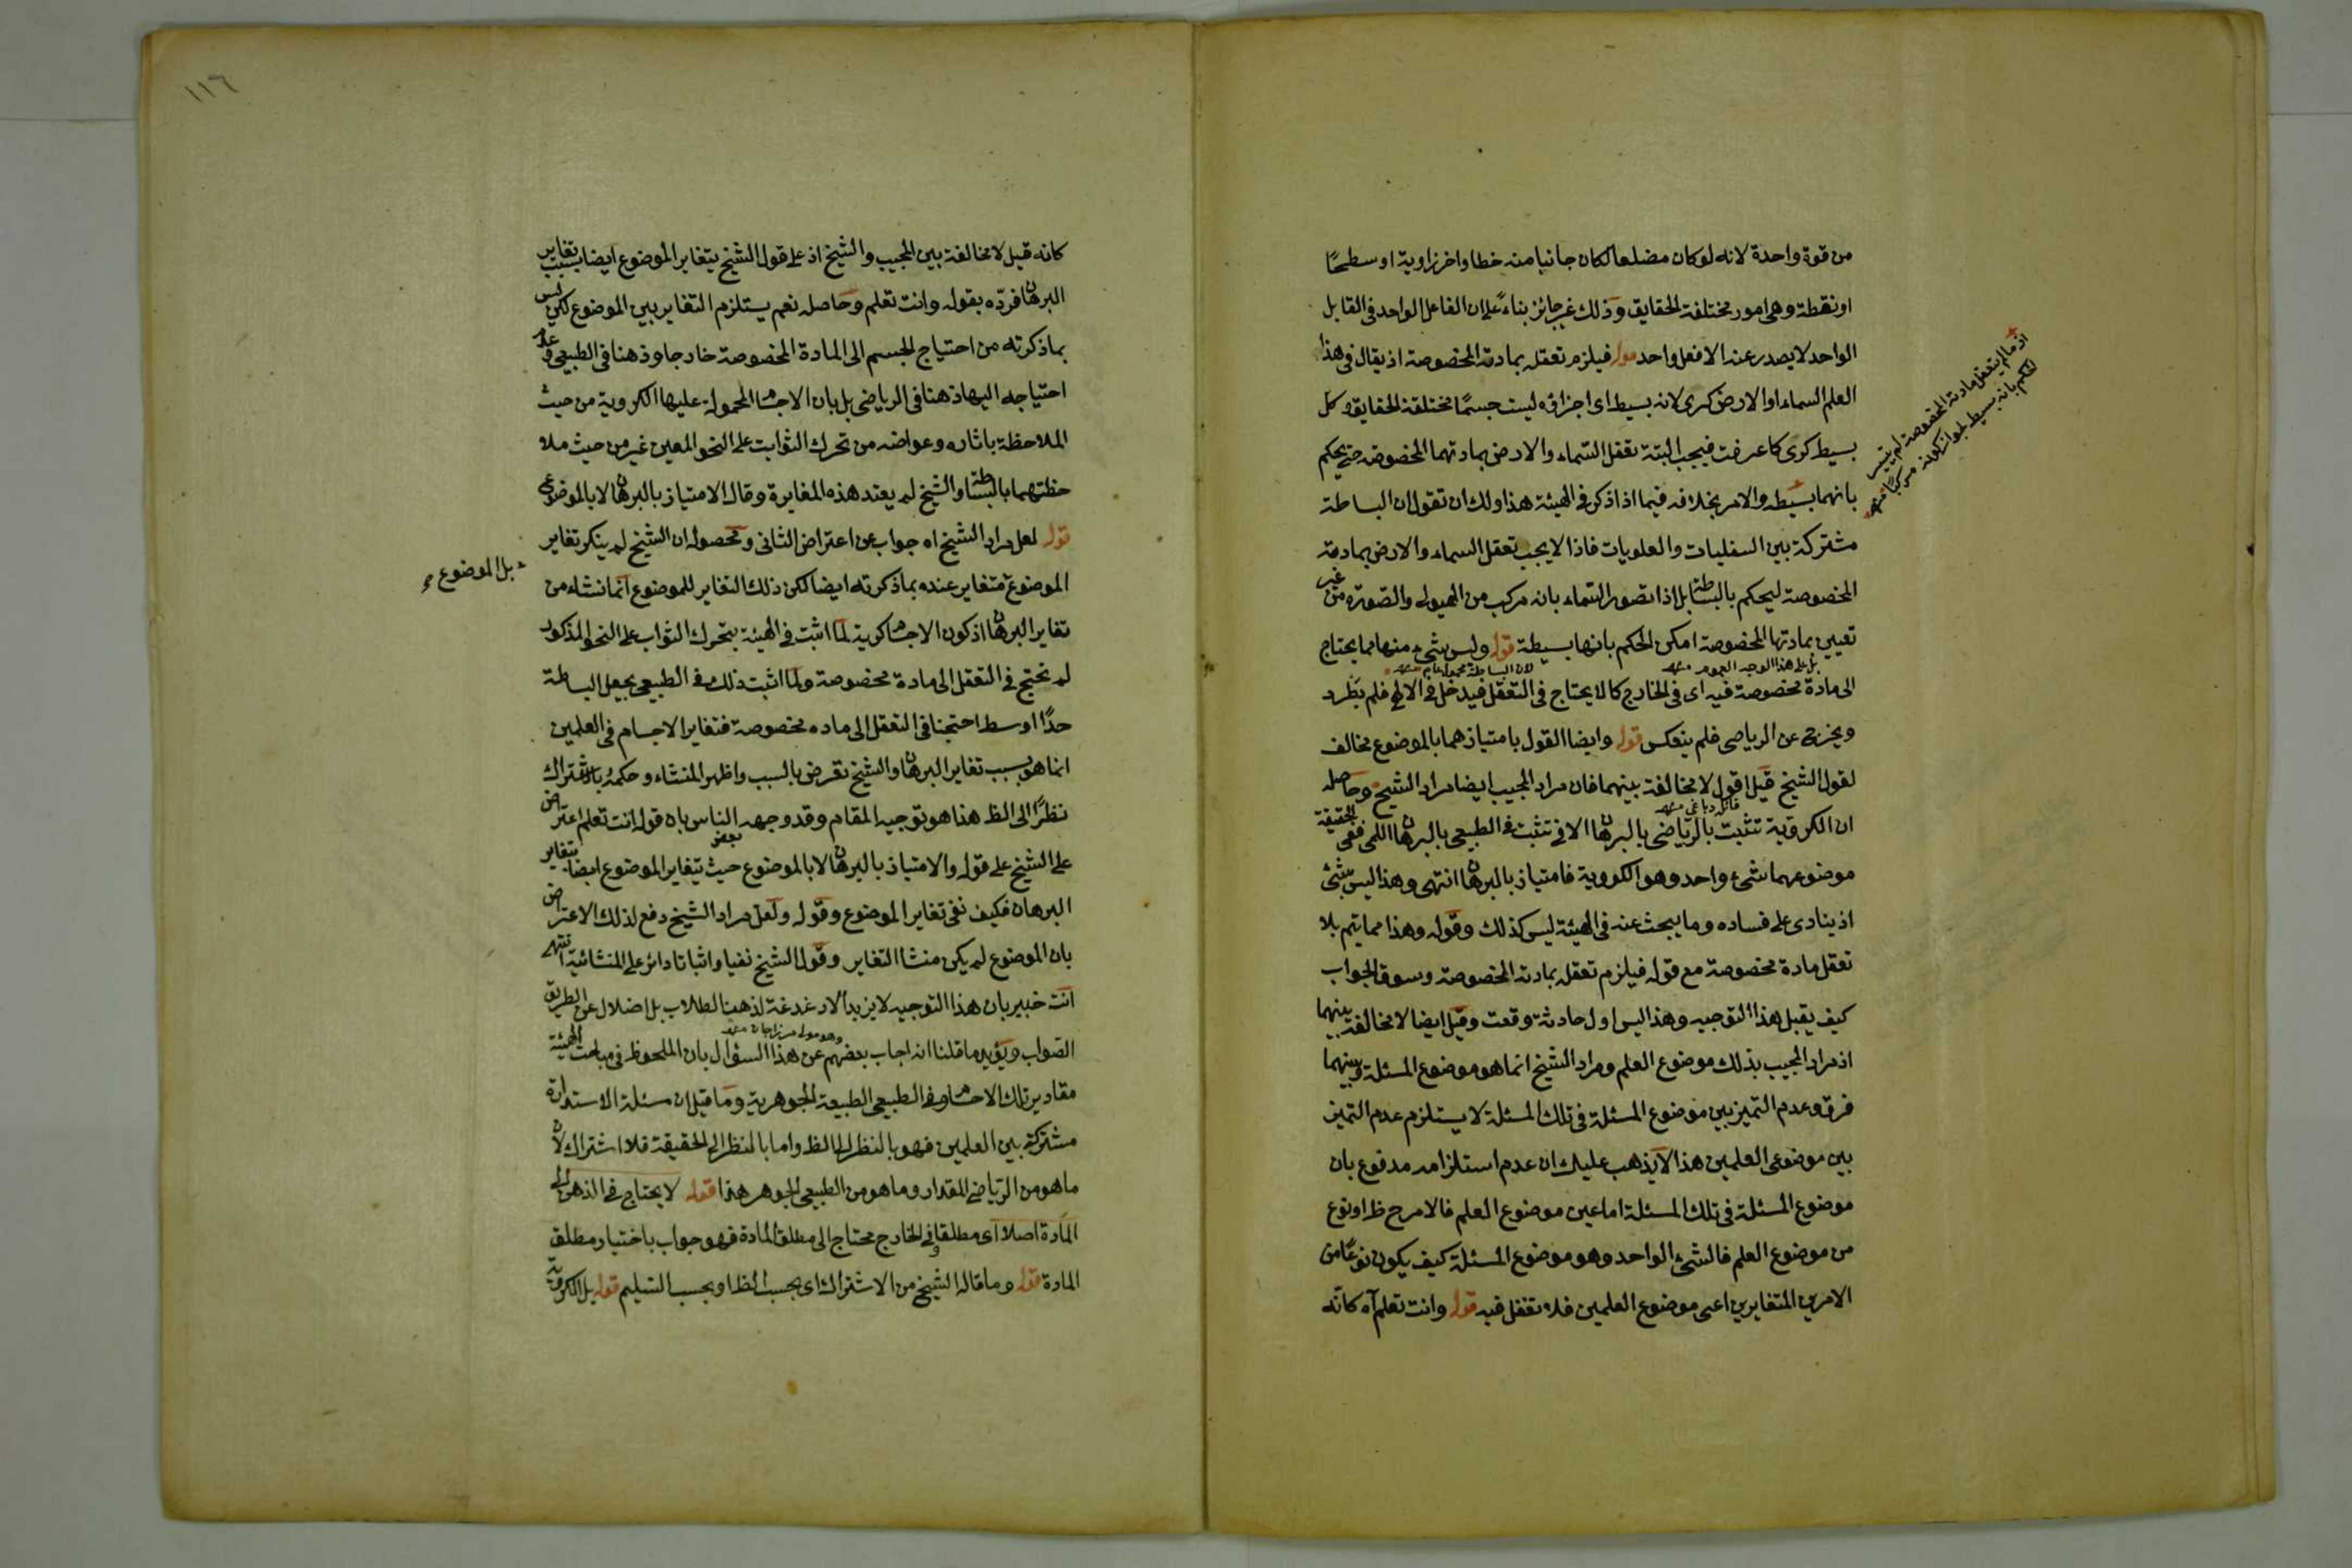 من قوة واحدة لانه لو كان مضلعا لكان جانبا منه خطا واخر زاوية او سطحًا
او نقطة وهى امور مختلفة الحقايق وذلك غير جائز بناءً على ان الفاعل الواحد فى القابل
الواحد لا يصدر عنه الا فعل واحد قوله فيلزم تعقله بمادته المخصوصة اذ يقال فى هذا
العلم السماء او الارض كرى لانه بسيط اى اجزاؤه ليست جسمًا مختلفة الحقايق وكل
بسيط كرى كما عرفت فيجب البتة تعقل السماء والارض بمادتهما المخصوصة حتى يحكم
بانهما بسيطه والامر بخلافه فيما اذا ذكر فى الهيئة هذا ولك ان تقول ان البساطة
مشتركة بين السفليات والعلويات فاذا لا يجب تعقل السماء والارض بمادته
المخصوصة ليحكم بالبساطة بل اذا تصور السماء بانه مركب من الهيولى والصورة من غير
تعيين بمادتها المخصوصة امكن الحكم بانها بسيطة قوله وليس شىء منها مما يحتاج
بل على هذا الوجه العموم منه لان البساطة محمول عام منه
الى مادة مخصوصة فيه اى فى الخارج كما لا يحتاج فى التعقل فيدخل فى الالهى فلم يطرد
ويخرج عن الرياضى فلم ينعكس قوله وايضا القول بامتيازهما بالموضوع مخالف
لقول الشيخ قيل اقول لا مخالفة بينهما فان مراد المجيب ايضا مراد الشيخ وحاصله
قائله دباغى منه
ان الكروية تثبت بالرياضى بالبرهان الانى تثبت فى الطبيعى بالبرهان اللمى ففى الحقيقة
موضوعهما شىء واحد وهو الكروية فامتياز بالبرهان انتهى وهذا ليس بشئ
اذ ينادى على فساده وما يبحث عنه فى الهيئة ليس كذلك وقوله وهذا مما يتم بلا
تعقل مادة مخصوصة مع قوله فيلزم تعقله بمادته المخصوصة وسوق الجواب
كيف يقبل هذا التوجيه وهذا ليس اول حادثة وقعت وقيل ايضا لا مخالفة بينهما
اذ مراد المجيب بذلك موضوع العلم ومراد الشيخ انما هو موضوع المسئلة وبينهما
فرق وعدم التميز بين موضوع المسئلة فى تلك المسئلة لا يستلزم عدم التميز
بين موضوعى العلمين هذا لا يذهب عليك ان عدم استلزامه مدفوع بان
موضوع المسئلة فى تلك المسئلة اما عين موضوع العلم فالامر ح ظ او نوع
من موضوع العلم فالشئ الواحد وهو موضوع المسئلة كيف يكون نوعًا من
الامرين المتغايرين اعنى موضوع العلمين فلا تغفل فيه قوله وانت تعلم آه كانّه
اذ ما لم يتعقل مادته المخصوصة لم يتيسر
الحكم بانه بسيط لجواز كونه مركبا منه
١١٦
كانه قيل لا مخالفة بين المجيب والشيخ اذ على قول الشيخ يتغاير الموضوع ايضا بسبب تغاير
البرهان فردّه بقوله وانت تعلم وحاصله نعم يستلزم التغاير بين الموضوع لكن ليس
بما ذكرته من احتياج الجسم الى المادة المخصوصة خارجا وذهنا فى الطبيعى وعدم
احتياجه اليها ذهنا فى الرياضى بل بان الاجسام المحمولة عليها الكروية من حيث
الملاحظة باثاره وعوارضه من تحرك الثوابت على النحو المعين غير من حيث ملا
حظتهما بالبساطة والشيخ لم يعتد هذه المغايرة وقال الامتياز بالبرهان لا بالموضوع
قوله لعل مراد الشيخ اه جواب عن اعتراض الثانى ومحصوله ان الشيخ لم ينكر تغاير
الموضوع متغاير عنده بما ذكرته ايضا لكن ذلك التغاير للموضوع انما نشاء من
بل الموضوع
تغاير البرهان اذ كون الاجسام كروية لمّا اثبت فى الهيئة بتحرك الثوابت على النحو المذكور
لم نحتج فى التعقل الى مادة مخصوصة ولما اثبت ذلك فى الطبيعى بجعل البساطة
حدًا اوسط احتجنا فى التعقل الى ماده مخصوصة فتغاير الاجسام فى العلمين
انما هو بسبب تغاير البرهان والشيخ تعرض بالسبب واظهر المنشاء وحكمه بالاشتراك
نظرًا الى الظ هذا هو توجيه المقام وقد وجهه بعض الناس بان قوله انت تعلم اعتراض
على الشيخ على قوله والامتياز بالبرهان لا بالموضوع حيث يتغاير الموضوع ايضا بتغاير
البرهان فكيف نفى تغاير الموضوع وقوله ولعل مراد الشيخ دفع لذلك الاعتراض
بان الموضوع لم يكن منشا التغاير وقول الشيخ نفيا واثباتا دائر على المنشائية انتهى
انت خبير بان هذا التوجيه لا يزيد الا دغدغة لذهن الطلاب بل اضلال عن الطريق
وهو مولى ميرزاجان منه
الصواب ويؤيد ما قلنا انه اجاب بعضهم عن هذا السؤال بان الملحوظ فى مباحث الهيئة
مقادير تلك الاجسام وفى الطبيعى الطبيعة الجوهرية وما قيل ان مسئلة الاستدارة
مشتركة بين العلمين فهو بالنظر الى الظ واما بالنظر الى الحقيقة فلا اشتراك لان
ما هو من الرياضى المقدار وما هو من الطبيعى الجوهر هذا قوله لا يحتاج فى الذهن الى
المادة اصلا اى مطلقا وفى الخارج محتاج الى مطلق المادة فهو جواب باختيار مطلق
المادة قوله وما قاله الشيخ من الاشتراك اى بحسب الظ او بحسب التسليم قوله بل الكروية